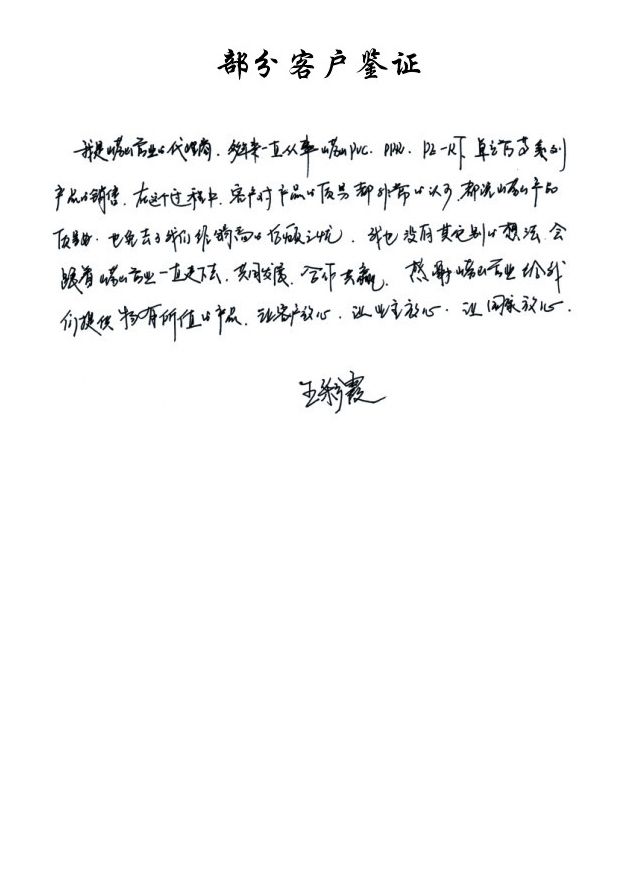 部分客户鉴证
我是崂山管业的代理商，多年来一直从事崂山PVC、PPR、PE-RT
产品的销售，在这个过程中，客户对产品的质量都非常的认可，都说崂山产品
质量好，也免去了我们经销商的后顾之忧，我也没有其它别的想法，会
跟着崂山管业一直走下去，共同发展，合作共赢，感谢崂山管业给我
们提供物有所值的产品，让客户放心，让业主放心，让国家放心。
王彩霞